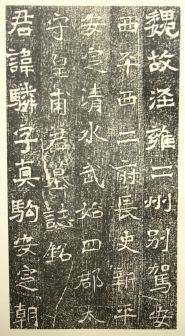 魏故涇雍二州別駕安
西平西二府長史新平
安定清水武始四郡太
守皇甫君墓誌銘
君諱驎字真駒安定朝